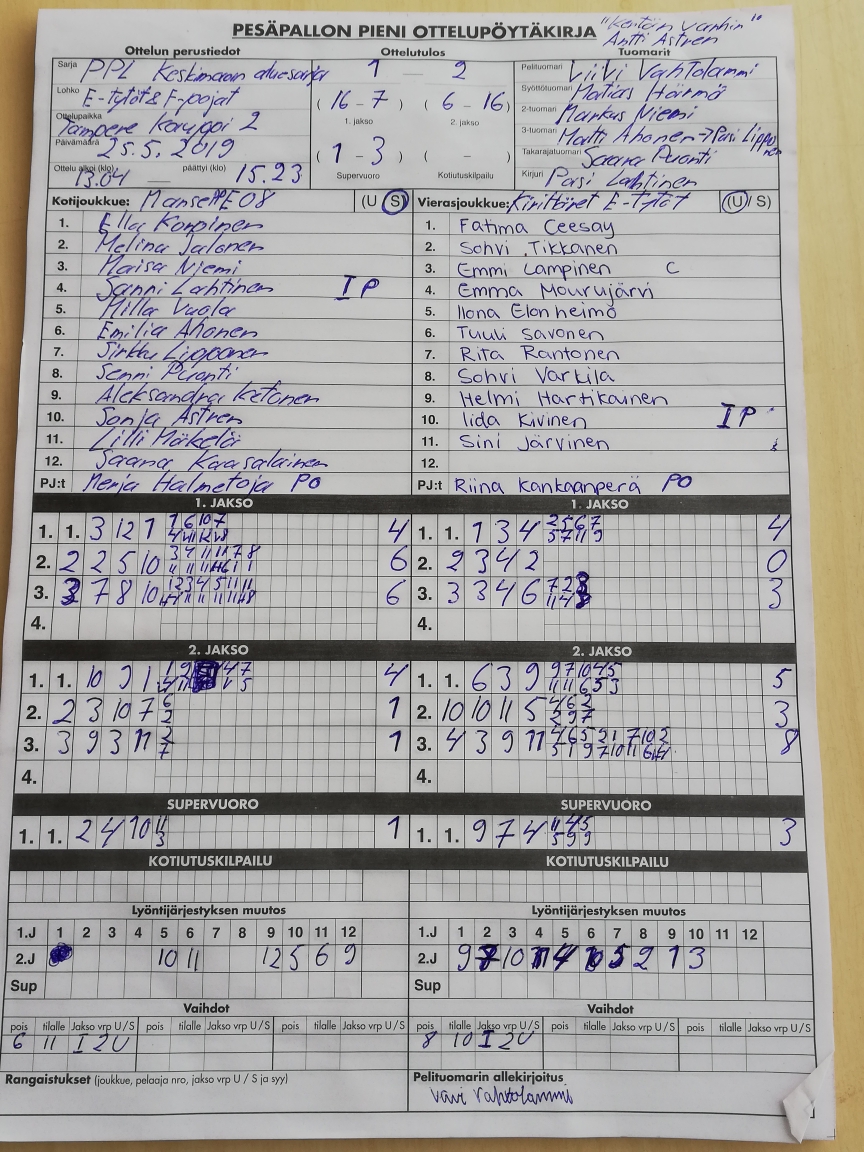 "Kentän vanhin"
PESÄPALLON PIENI OTTELUPÖYTÄKIRJA Antti Astren
Ottelun perustiedot Ottelutulos Tuomarit
Sarja PPL Keskimaan aluesarja 1 — 2 Pelituomari Viivi Vahtolammi
Lohko E-tytöt & F-pojat (16-7) (6-16) Syöttötuomari Matias Härmä
Ottelupaikka Tampere Kauppi 2 1. jakso 2. jakso 2-tuomari Markus Niemi
Päivämäärä 25.5.2019 (1-3) ( - ) 3-tuomari Matti Ahonen → Pasi Lipponen
Ottelu alkoi (klo) 13.04 — päättyi (klo) 15.23 Supervuoro Kotiutuskilpailu Takarajatuomari Saana Puonti
Kirjuri Pasi Lahtinen
Kotijoukkue: MansePP E08 (U S) Vierasjoukkue: Kirittäret E-tytöt (U/S)
1. Ella Korpinen 1. Fatima Ceesay
2. Melina Salonen 2. Sohvi Tikkanen
3. Maisa Niemi 3. Emmi Lampinen C
4. Sanni Lahtinen I P 4. Emma Mourujärvi
5. Milla Vaala 5. Ilona Elonheimo
6. Emilia Ahonen 6. Tuuli Savonen
7. Sirkku Lipponen 7. Rita Rantonen
8. Senni Puonti 8. Sohvi Varkila
9. Aleksandra Ketonen 9. Helmi Hartikainen
10. Sonja Astren 10. Iida Kivinen I P
11. Lilli Mäkelä 11. Sini Järvinen
12. Saana Kaasalainen 12.
PJ:t Merja Halmetoja PO PJ:t Riina Kankaanperä PO
1. JAKSO 1. JAKSO
1. 1. 3 12 1 4 1. 1. 1 3 4 4
2. 2 2 5 10 6 2. 2 3 4 2 0
3. 3 7 8 10 6 3. 3 3 4 6 3
4. 4.
2. JAKSO 2. JAKSO
1. 1. 10 9 1 4 1. 1. 6 3 9 5
2. 2 3 10 7 1 2. 10 10 11 5 3
3. 3 9 3 11 1 3. 4 3 9 11 8
4. 4.
SUPERVUORO SUPERVUORO
1. 1. 2 4 10 1 1. 1. 9 7 4 3
KOTIUTUSKILPAILU KOTIUTUSKILPAILU
Lyöntijärjestyksen muutos Lyöntijärjestyksen muutos
1.J 1 2 3 4 5 6 7 8 9 10 11 12 1.J 1 2 3 4 5 6 7 8 9 10 11 12
2.J 10 11 12 5 6 9 2.J 9 7 10 11 4 6 5 2 1 3
Sup Sup
Vaihdot Vaihdot
pois tilalle Jakso vrp U/S pois tilalle Jakso vrp U/S pois tilalle Jakso vrp U/S pois tilalle Jakso vrp U/S pois tilalle Jakso vrp U/S pois tilalle Jakso vrp U/S
6 11 I 2 U 8 10 I 2 U
Rangaistukset (joukkue, pelaaja nro, jakso vrp U / S ja syy) Pelituomarin allekirjoitus
Viivi Vahtolammi